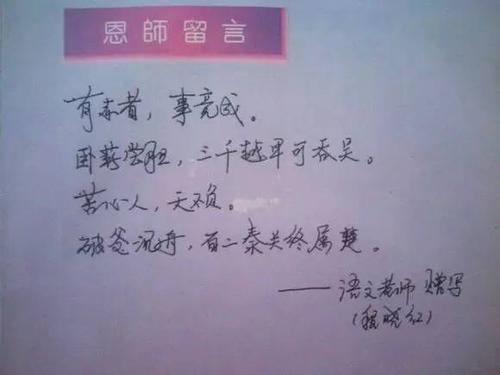 恩師留言
有志者，事竟成。
卧薪尝胆，三千越甲可吞吴。
苦心人，天不负。
破釜沉舟，百二秦关终属楚。
——语文老师 赠写
(程晓红)